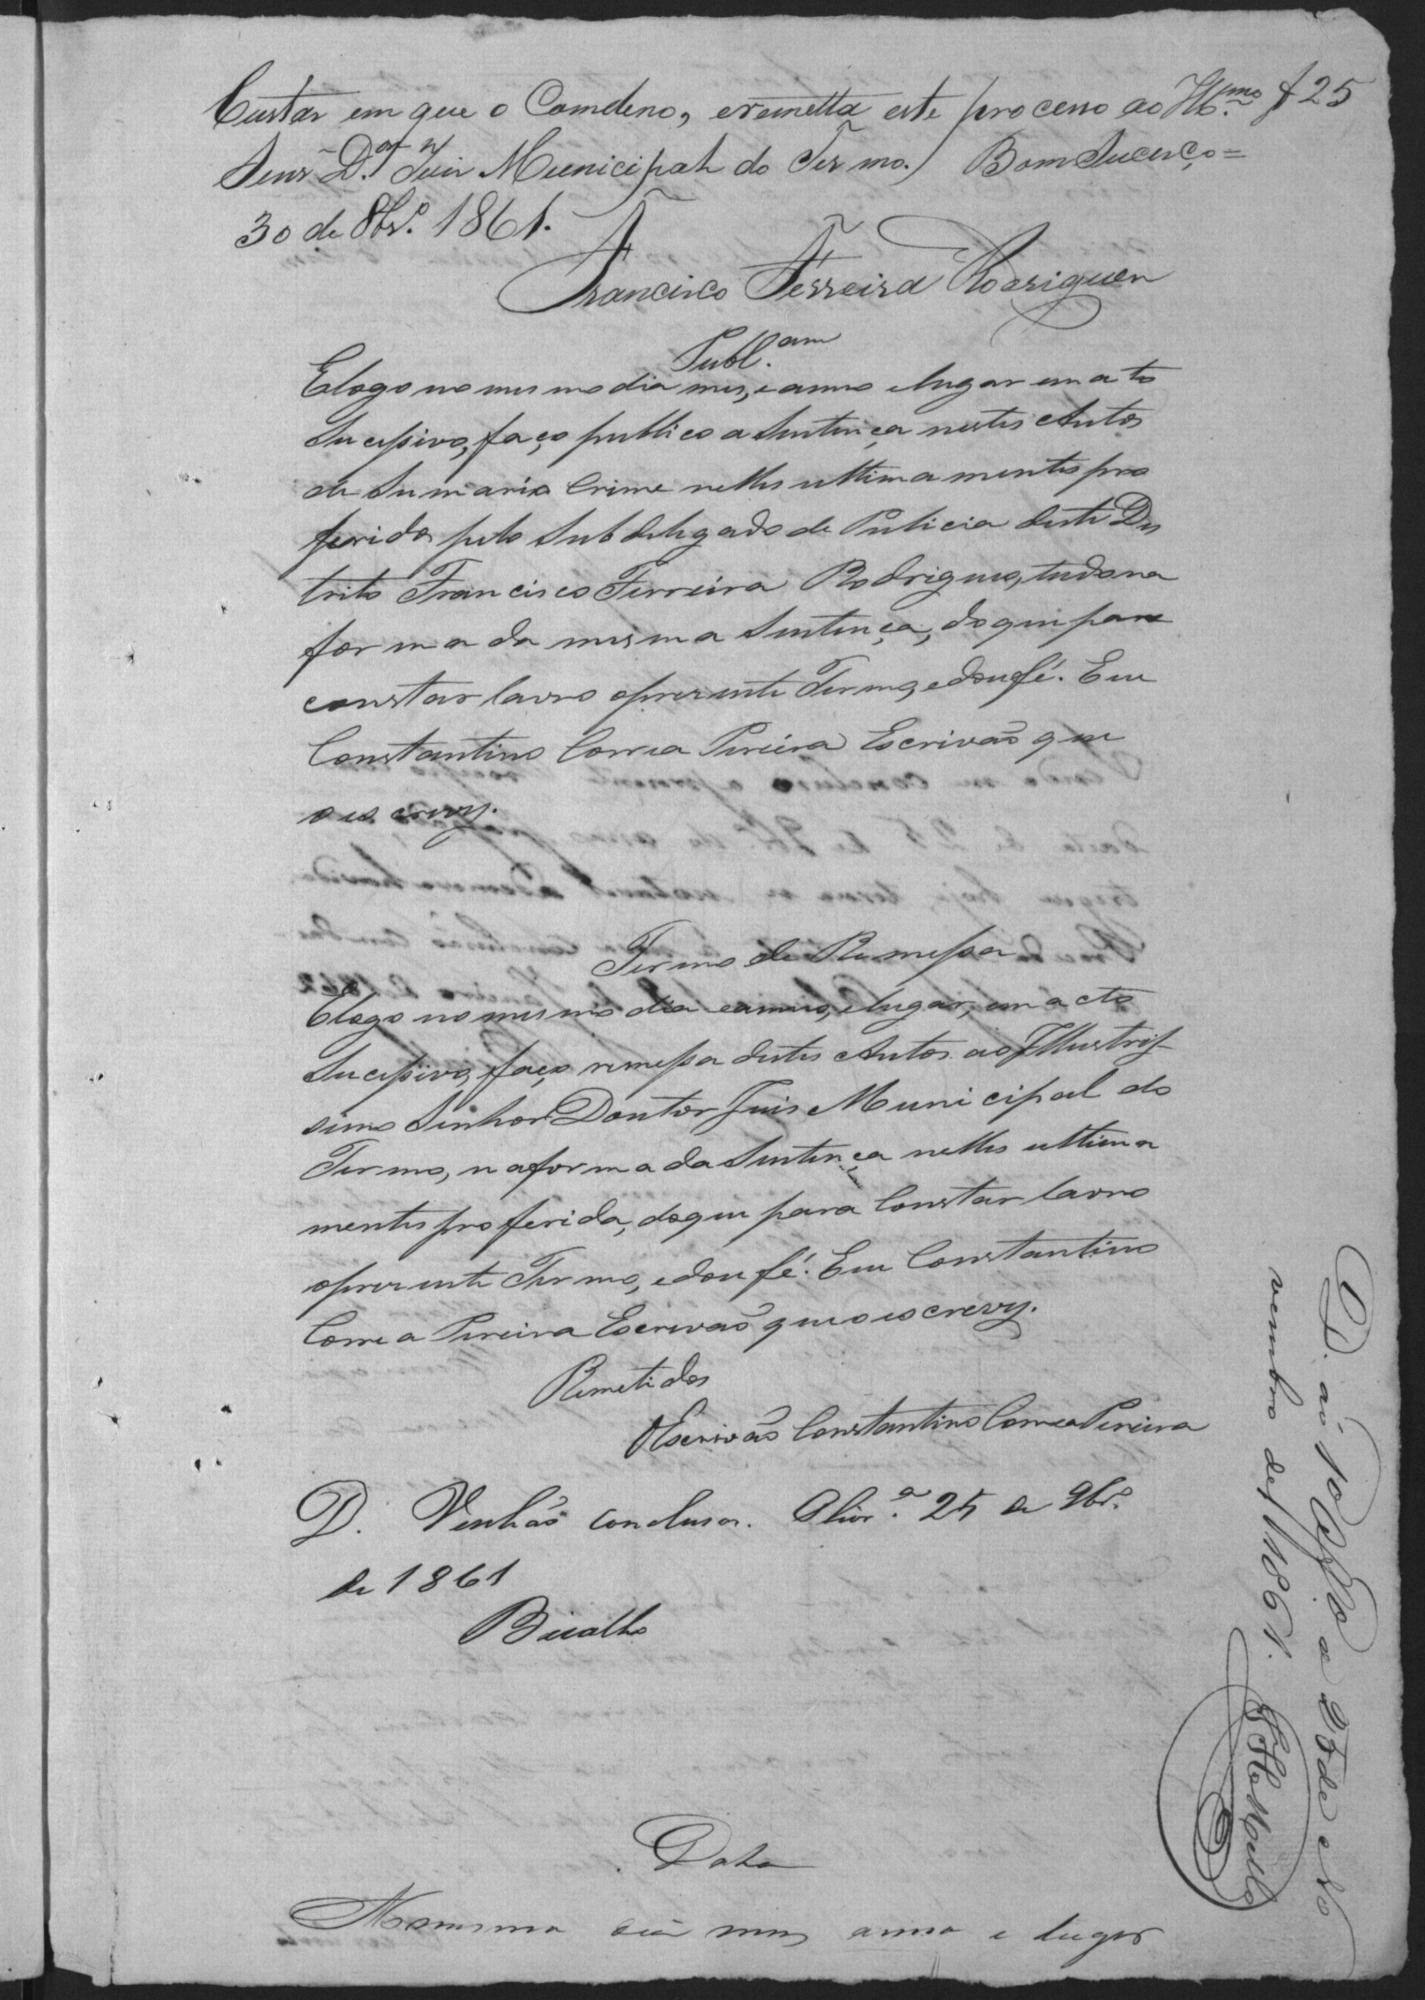 Custas em que o Comdeno, eremetta este processo ao Illmo. f 25
Senr. Dor. Juis Municipal do Termo. Bom Sucesço=
30 de 8br.o 1861.
Francisco Ferreira Rodrigues
Publ.am
Elogo no mesmo dia mes, e anno elugar em ato
Sucessivo, faço publico a Sentença nestes Autos
de Sumario Crime nelles ultimamente pro
ferida pelo Subdelegado de Policia deste Des
trito Francisco Ferreira Rodrigues, tudo na
forma da mesma Sentença, do que para
constar lavro opresente Termo, edou fé. Eu
Constantino Correa Pereira Escrivaõ que
o escrevy.
Termo de Remessa
Elogo no mesmo dia e anno, elugar, em acto
Sucessivo, faço remessa destes Autos ao Illustris
simo Senhor Doutor Juis Municipal do
Termo, na forma da Sentença nelles ultima
mente proferida, do que para Constar lavro
opresente Termo, edou fé. Eu Constantino
Correa Pereira Escrivaõ que o escrevy.
Remetidos
OEscrivaõ Constantino Correa Pereira
D. Venhaõ conclusos. Olivr.a 25 de 9br.o
de 1861
Bicalho
Data
No mesmo dia mes, anno e lugar
D. ao 1o Officio a 25 de No
vembro de 1861.
Mello